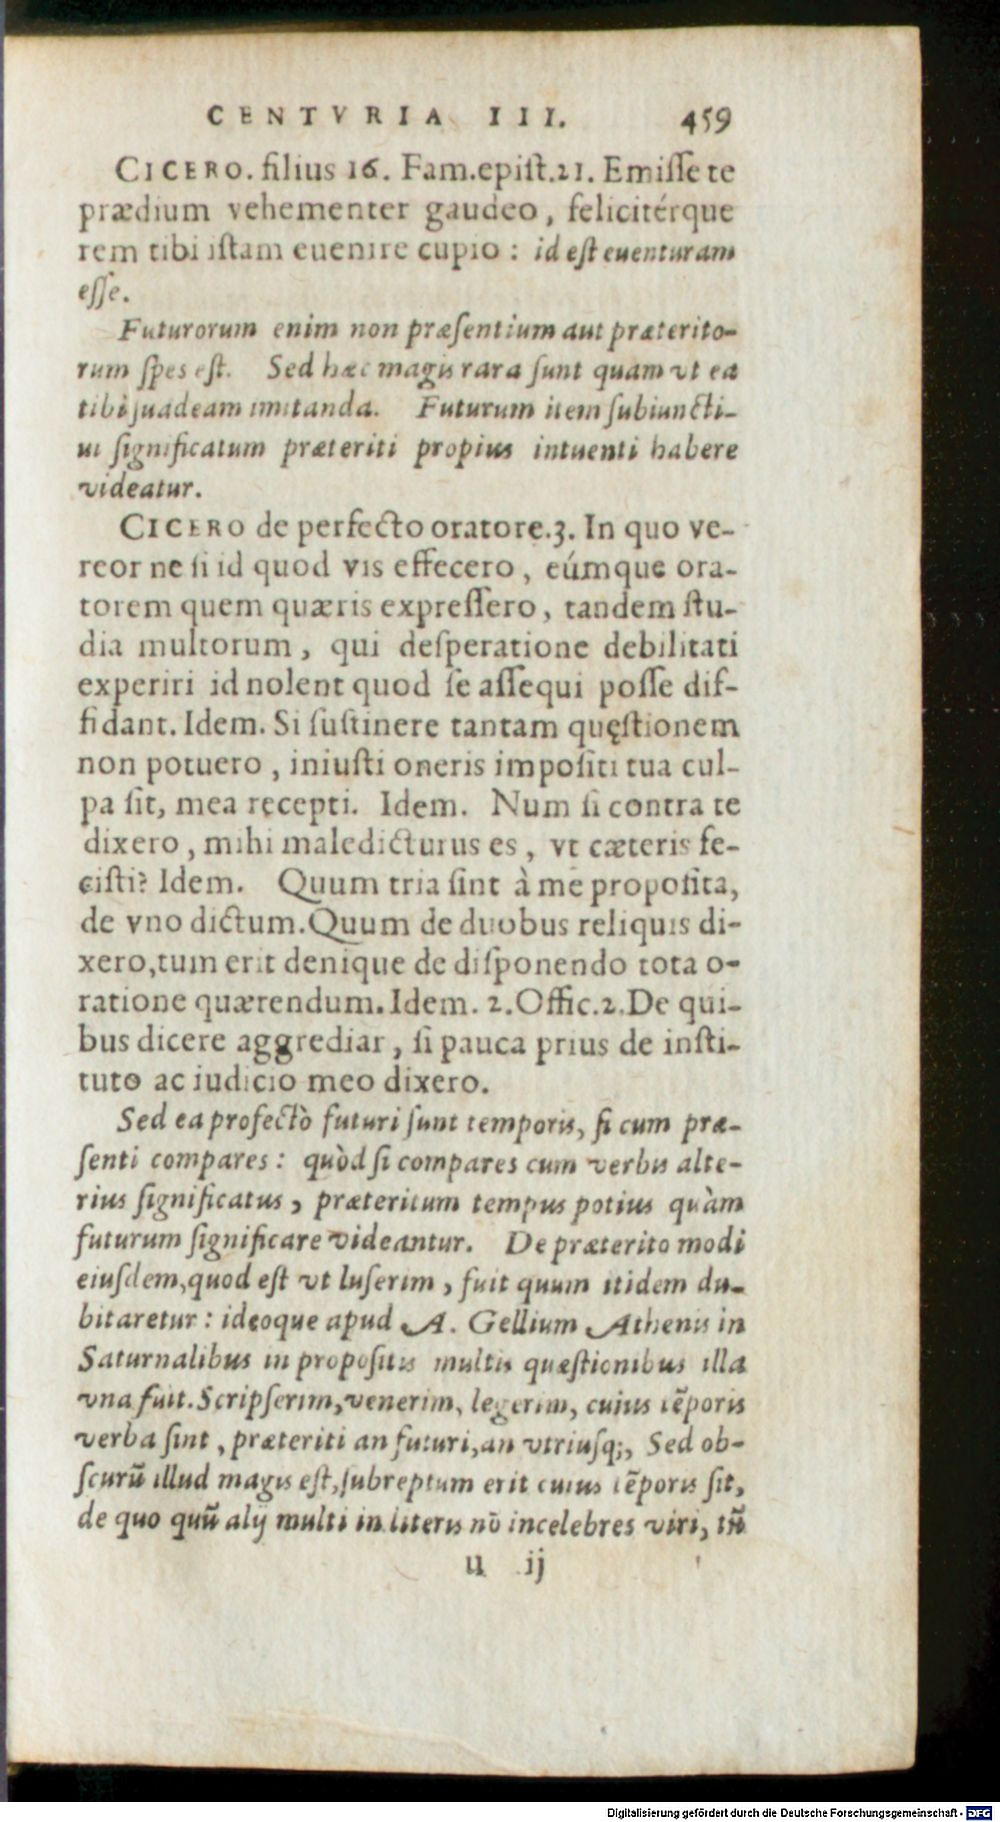 CENTVRIA III. 459
CICERO. filius 16. Fam.epist.21. Emisse te
prædium vehementer gaudeo, felicitérque
rem tibi istam euenire cupio: id est euenturam
esse.
Futurorum enim non præsentium aut præterito-
rum spes est. Sed hæc magis rara sunt quam vt ea
tibi suadeam imitanda. Futurum item subiuncti-
ui significatum præteriti propius intuenti habere
videatur.
CICERO de perfecto oratore.3. In quo ve-
reor ne si id quod vis effecero, eúmque ora-
torem quem quæris expressero, tandem stu-
dia multorum, qui desperatione debilitati
experiri id nolent quod se assequi posse dif-
fidant. Idem. Si sustinere tantam quęstionem
non potuero, iniusti oneris impositi tua cul-
pa sit, mea recepti. Idem. Num si contra te
dixero, mihi maledicturus es, vt cæteris fe-
cisti? Idem. Quum tria sint à me proposita,
de vno dictum. Quum de duobus reliquis di-
xero, tum erit denique de disponendo tota o-
ratione quærendum. Idem. 2. Offic.2. De qui-
bus dicere aggrediar, si pauca prius de insti-
tuto ac iudicio meo dixero.
Sed ea profectò futuri sunt temporis, si cum præ-
senti compares: quòd si compares cum verbis alte-
rius significatus, præteritum tempus potius quàm
futurum significare videantur. De præterito modi
eiusdem, quod est vt luserim, fuit quum itidem du-
bitaretur: ideoque apud A. Gellium Athenis in
Saturnalibus in propositis multis quæstionibus illa
vna fuit. Scripserim, venerim, legerim, cuius tēporis
verba sint, præteriti an futuri, an vtriusq;, Sed ob-
scurū illud magis est, subreptum erit cuius tēporis sit,
de quo quū alij multi in literis nō incelebres viri, tū
u ij
Digitalisierung gefördert durch die Deutsche Forschungsgemeinschaft - DFG